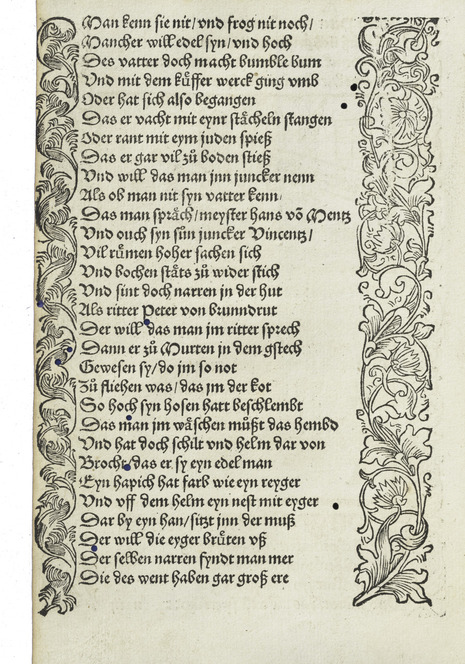 Man kenn sie nit/ vnd frog nit noch/
Mancher will edel syn/ vnd hoch
Des vatter doch macht bumble bum
Vnd mit dem küffer werck ging vmb
Oder hat sich also begangen
Das er vacht mit eynr stächeln stangen
Oder rant mit eym juden spieß
Das er gar vil zů boden stieß
Vnd will das man jnn juncker nenn
Als ob man nit syn vatter kenn/
Das man spräch/ meyster hans võ Mentz
Vnd ouch syn sůn juncker Vincentz/
Vil rümen hoher sachen sich
Vnd bochen stäts zů wider stich
Vnd sint doch narren in der hut
Als ritter Peter von brunndrut
Der will das man jm ritter sprech
Dann er zů Murten in dem gstech
Gewesen sy/ do jm so not
Zů fliehen was/ das jm der kot
So hoch syn hosen hatt beschlembt
Das man jm wäschen můßt das hembd
Vnd hat doch schilt vnd helm dar von
Brocht/ das er sy eyn edel man
Eyn hapich hat farb wie eyn reyger
Vnd vff dem helm eyn nest mit eyger
Dar by eyn han/ sitzt jnn der muß
Der will die eyger brüten vß
Der selben narren fyndt man mer
Die des went haben gar groß ere